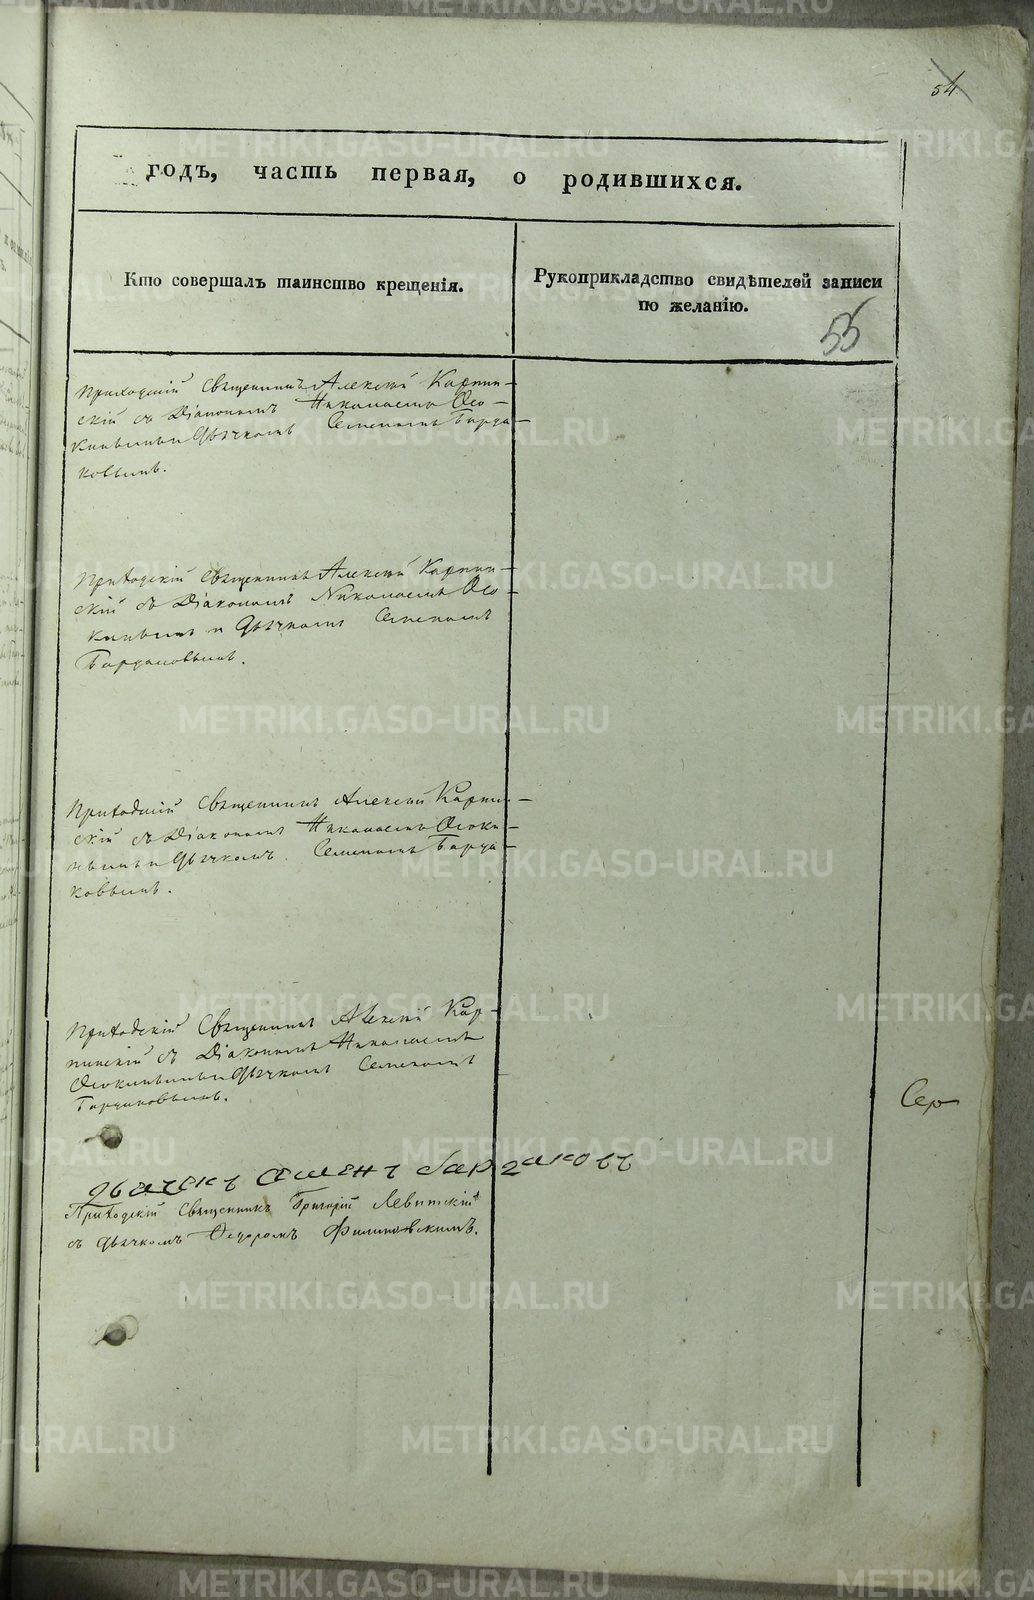 54
годъ, часть первая, о родившихся.
Кто совершалъ таинство крещенія.
Рукоприкладство свидѣтелей записи
по желанію.
55
Приходскій Священникъ Алексѣй Карпин-
скій съ Діакономъ Николаемъ Осо-
кинымъ и Дьячкомъ Семеномъ Барда-
ковымъ.
Приходскій Священникъ Алексѣй Карпин-
скій съ Діакономъ Николаемъ Осо-
кинымъ и Дьячкомъ Семеномъ
Бардаковымъ.
Приходскій Священникъ Алексѣй Карпин-
скій съ Діакономъ Николаемъ Осоки-
нымъ и Дьячкомъ Семеномъ Барда-
ковымъ.
Приходскій Священникъ Алексѣй Кар-
пинскій съ Діакономъ Николаемъ
Осокинымъ и Дьячкомъ Семеномъ
Бардаковымъ.
Сер
дьячекъ Семенъ бардаковъ
Приходскій Священникъ Григорій Левитскій
съ дьячкомъ Ѳедоромъ Филиповскимъ.
METRIKI.GASO-URAL.RU